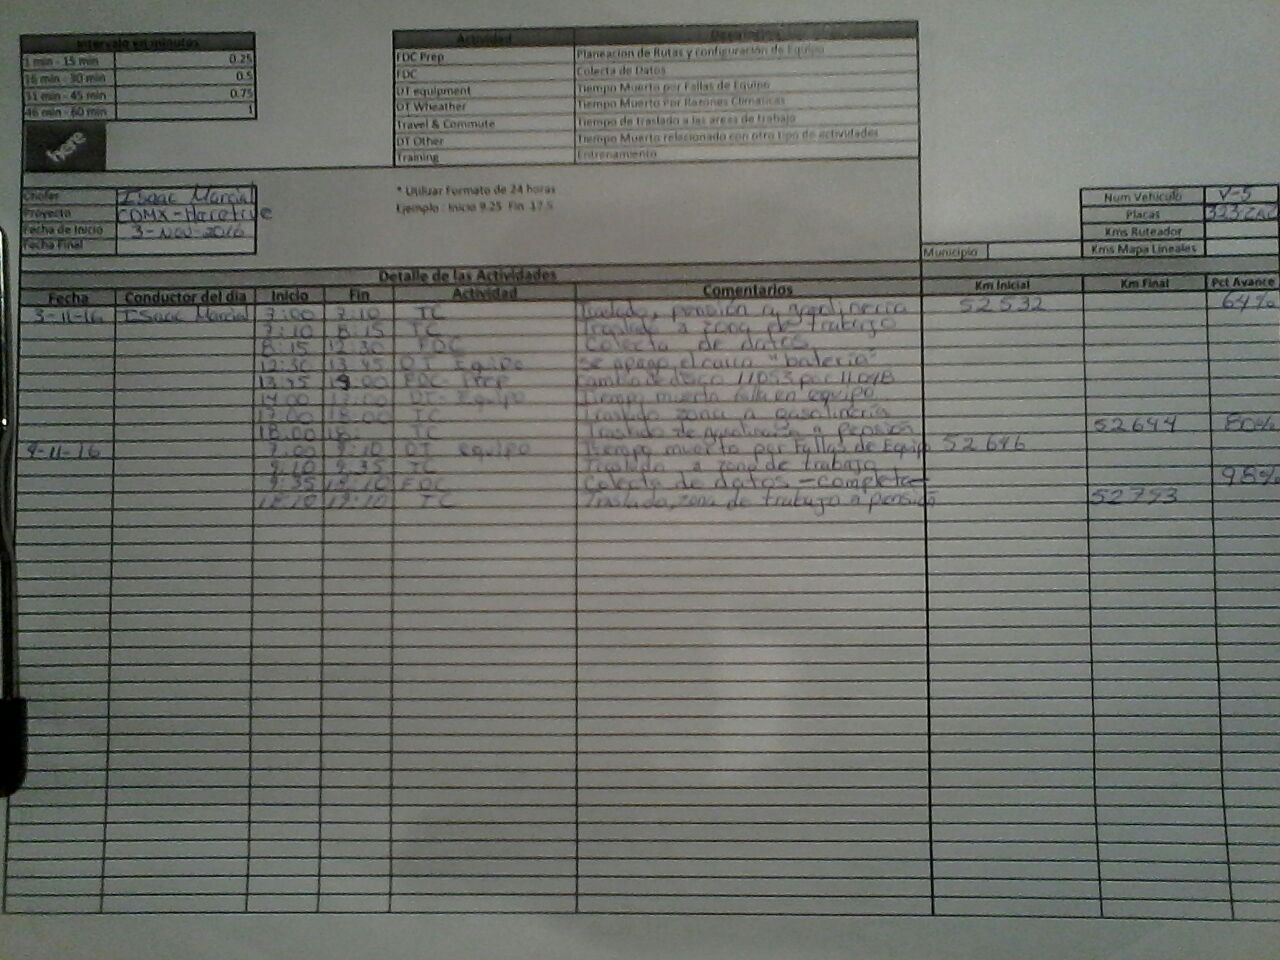 Intervalo en minutos
1 min - 15 min 0.25
16 min - 30 min 0.5
31 min - 45 min 0.75
46 min - 60 min 1
here
Actividad Descripcion
FDC Prep Planeacion de Rutas y configuración de Equipo
FDC Colecta de Datos
DT equipment Tiempo Muerto por Fallas de Equipo
DT Wheather Tiempo Muerto Por Razones Climaticas
Travel & Commute Tiempo de traslado a las areas de trabajo
DT Other Tiempo Muerto relacionado con otro tipo de actividades
Training Entrenamiento
* Utilizar Formato de 24 horas
Ejemplo : Inicio 9.25 Fin 17.5
Chofer Isaac Marcial
Proyecto CDMX-
Fecha de Inicio 3-Nov-2016
Fecha Final
Num Vehiculo V-5
Placas
Kms Ruteador
Municipio Kms Mapa Lineales
Detalle de las Actividades
Fecha Conductor del dia Inicio Fin Actividad Comentarios Km Inicial Km Final Pct Avance
3-11-16 Isaac Marcial 7:00 7:10 TC Traslado, pensión a gasolineria 52532 64%
7:10 8:15 TC Traslado a zona de trabajo
8:15 12:30 FDC Colecta de datos
12:30 13:45 DT Equipo Se apago el carro "bateria"
13:45 FDC Prep Cambio de disco 11053 por
14:00 17:00 DT-Equipo Tiempo muerto falla en equipo
17:00 18:00 TC Traslado zona a gasolineria
18:00 18: TC Traslado de gasolineria a pensión 52644 80%
4-11-16 7:00 9:10 DT equipo tiempo muerto por Fallas de Equipo 52646
9:10 9:35 TC Traslado a zona de trabajo
9:35 FDC Colecta de datos - completa 98%
19:10 TC Traslado, zona de trabajo a pensión 52793